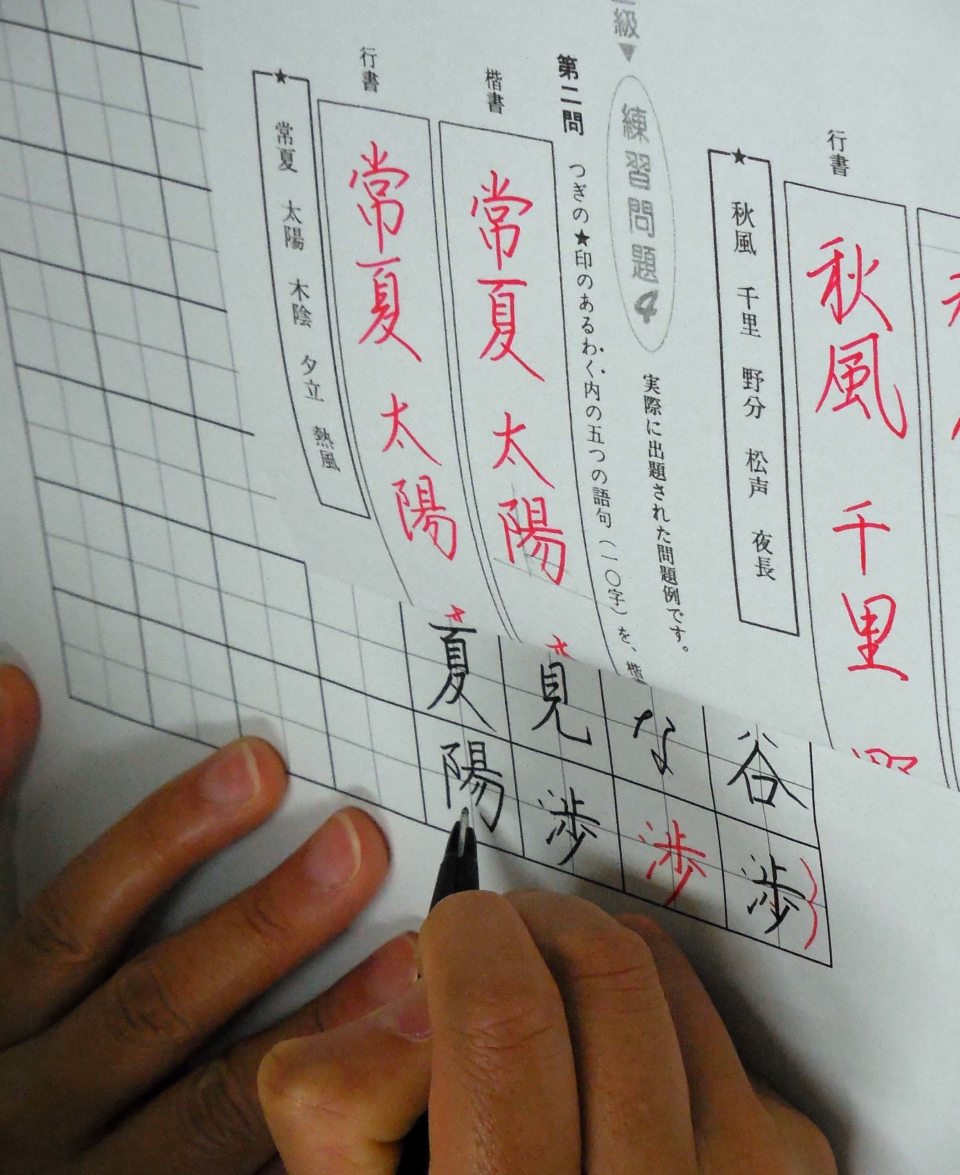 行書
秋風 千里
★ 秋風 千里 野分 松声 夜長
級▼
練習問題4
実際に出題された問題例です。
第二問 つぎの★印のあるわく内の五つの語句(一〇字)を、楷
楷書
常夏 太陽
行書
常夏 太陽
★ 常夏 太陽 木陰 夕立 熱風
谷渉
な渉
見渉
夏陽